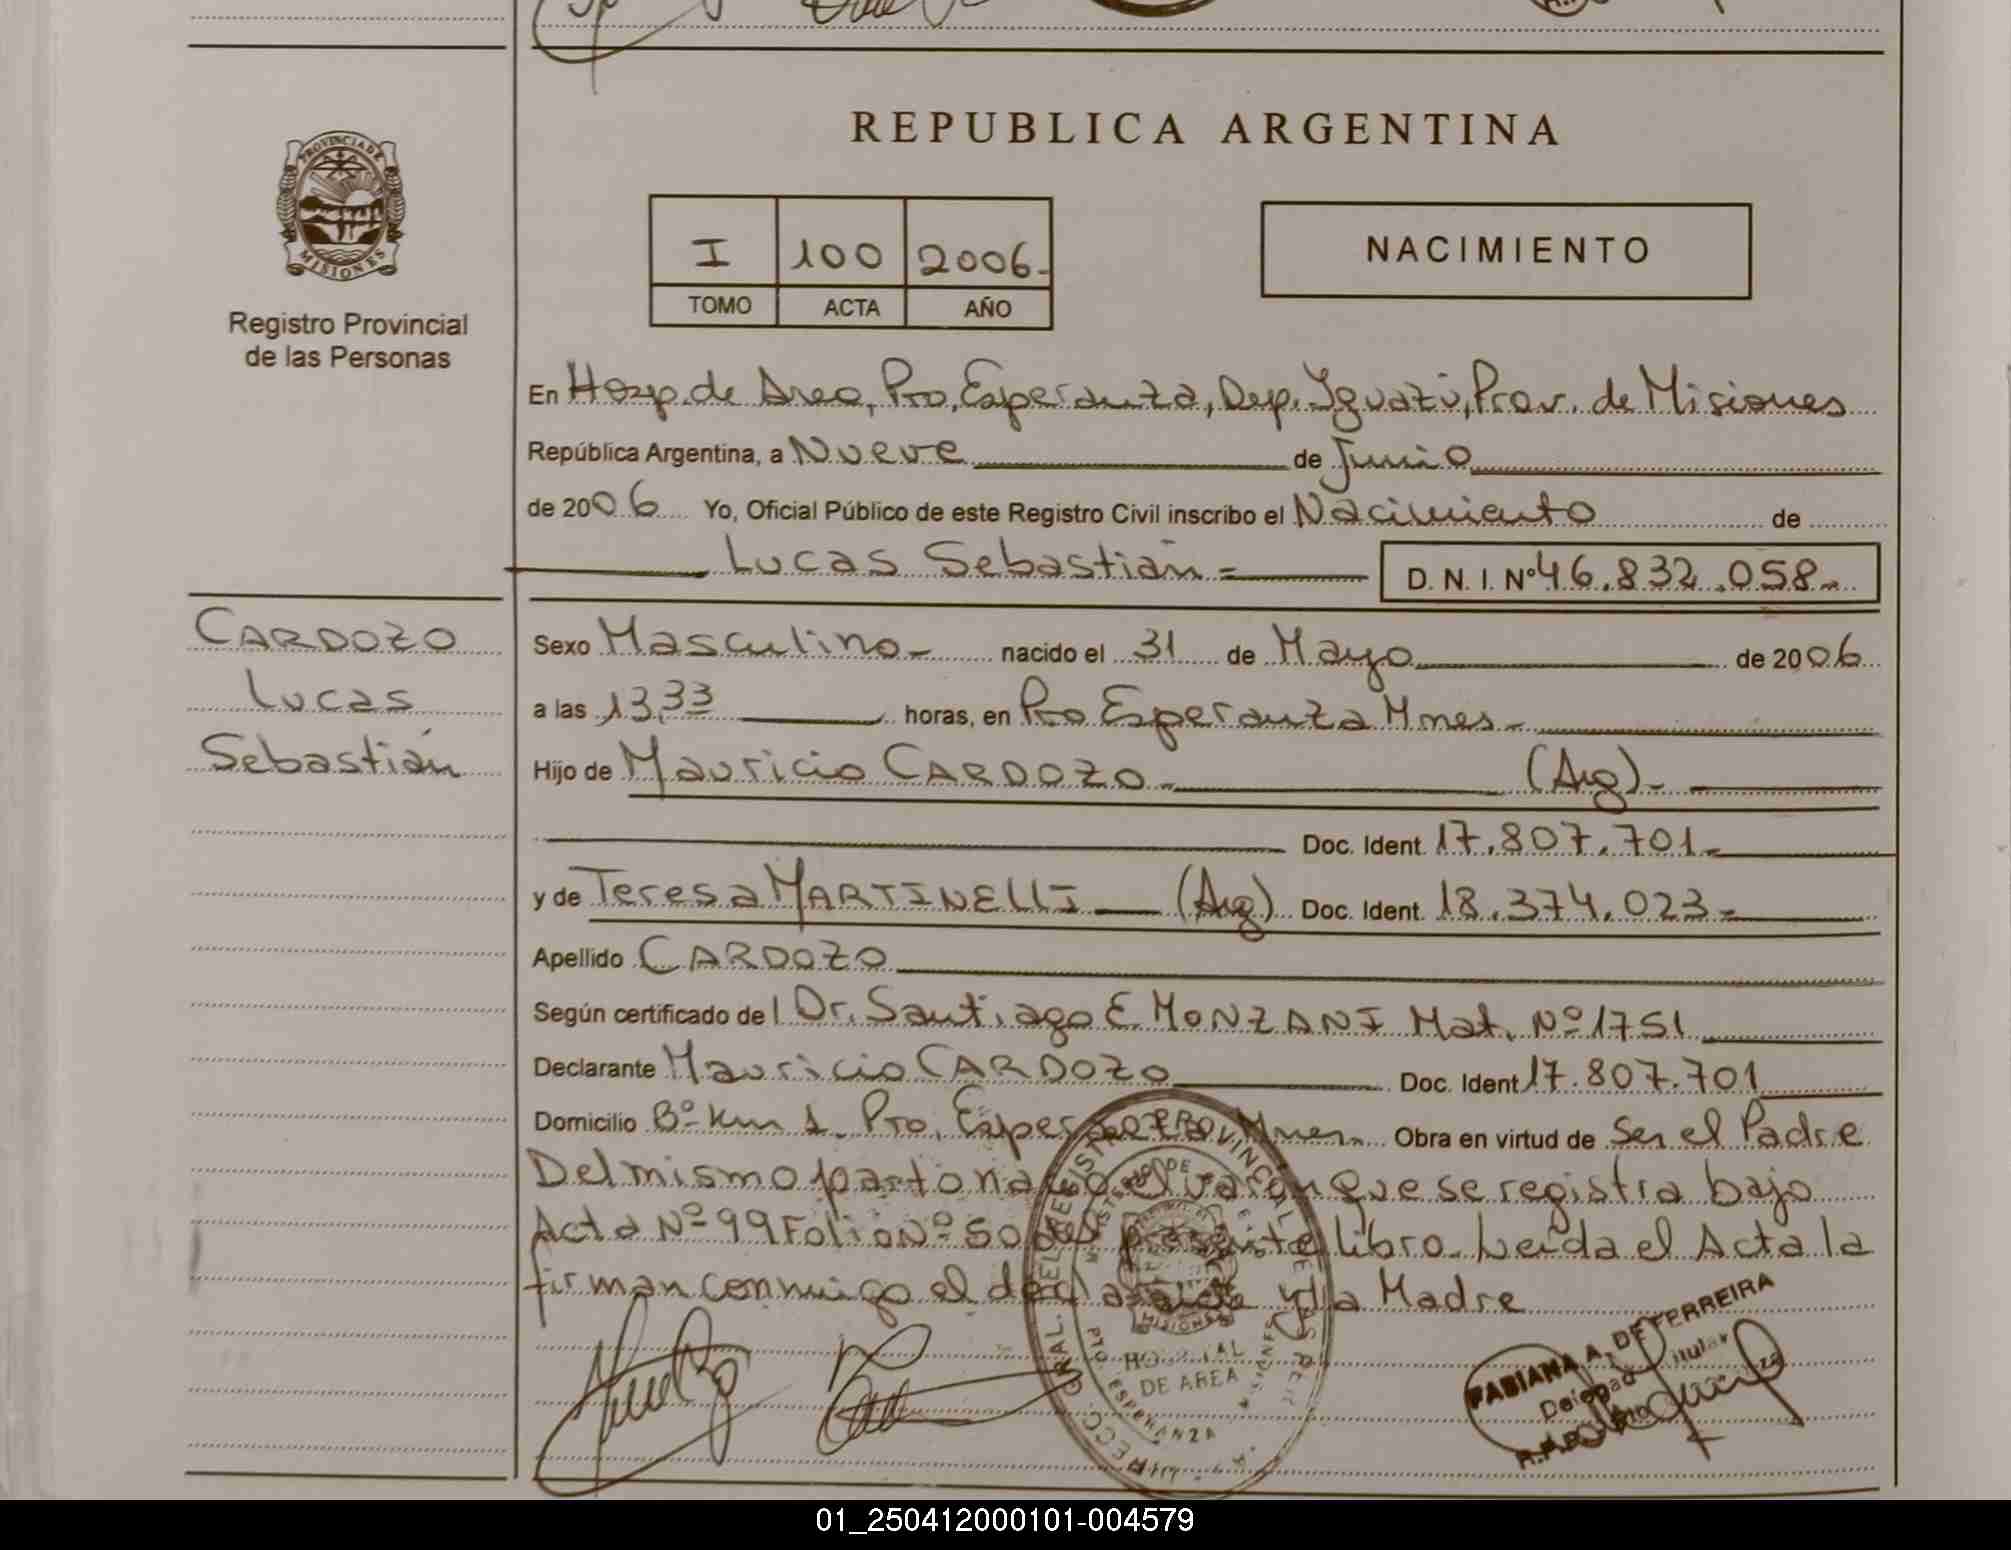 REPUBLICA ARGENTINA
PROVINCIA DE
MISIONES
Registro Provincial
de las Personas
I 100 2006.-
TOMO ACTA AÑO
NACIMIENTO
En Hosp. de Area, Pto. Esperanza, Dep. Iguazú, Prov. de Misiones
República Argentina, a Nueve de Junio
de 2006 Yo, Oficial Público de este Registro Civil inscribo el Nacimiento de
Lucas Sebastián=
D. N. I. Nº 46.832.058-
CARDOZO
Lucas
Sebastián
Sexo Masculino- nacido el 31 de Mayo de 2006
a las 13,33 horas, en Pto Esperanza Mnes-
Hijo de Mauricio CARDOZO- (Arg)-
Doc. Ident. 17.807.701-
y de Teresa MARTINELLI (Arg) Doc. Ident. 18.374.023-
Apellido CARDOZO
Según certificado del Dr. Santiago E. MONZANI Mat. Nº 1751
Declarante Mauricio CARDOZO Doc. Ident 17.807.701
Domicilio Bº Km 1 Pto. Esperanza Mnes Obra en virtud de Ser el Padre
Del mismo parto nacio el varon que se registra bajo
Acta Nº 99 Folio Nº 50 del presente libro. Leída el Acta la
firman conmigo el declarante y la Madre
MISIONES
HOSPITAL
DE AREA
PTO ESPERANZA
FABIANA A. DE FERREIRA
01_250412000101-004579